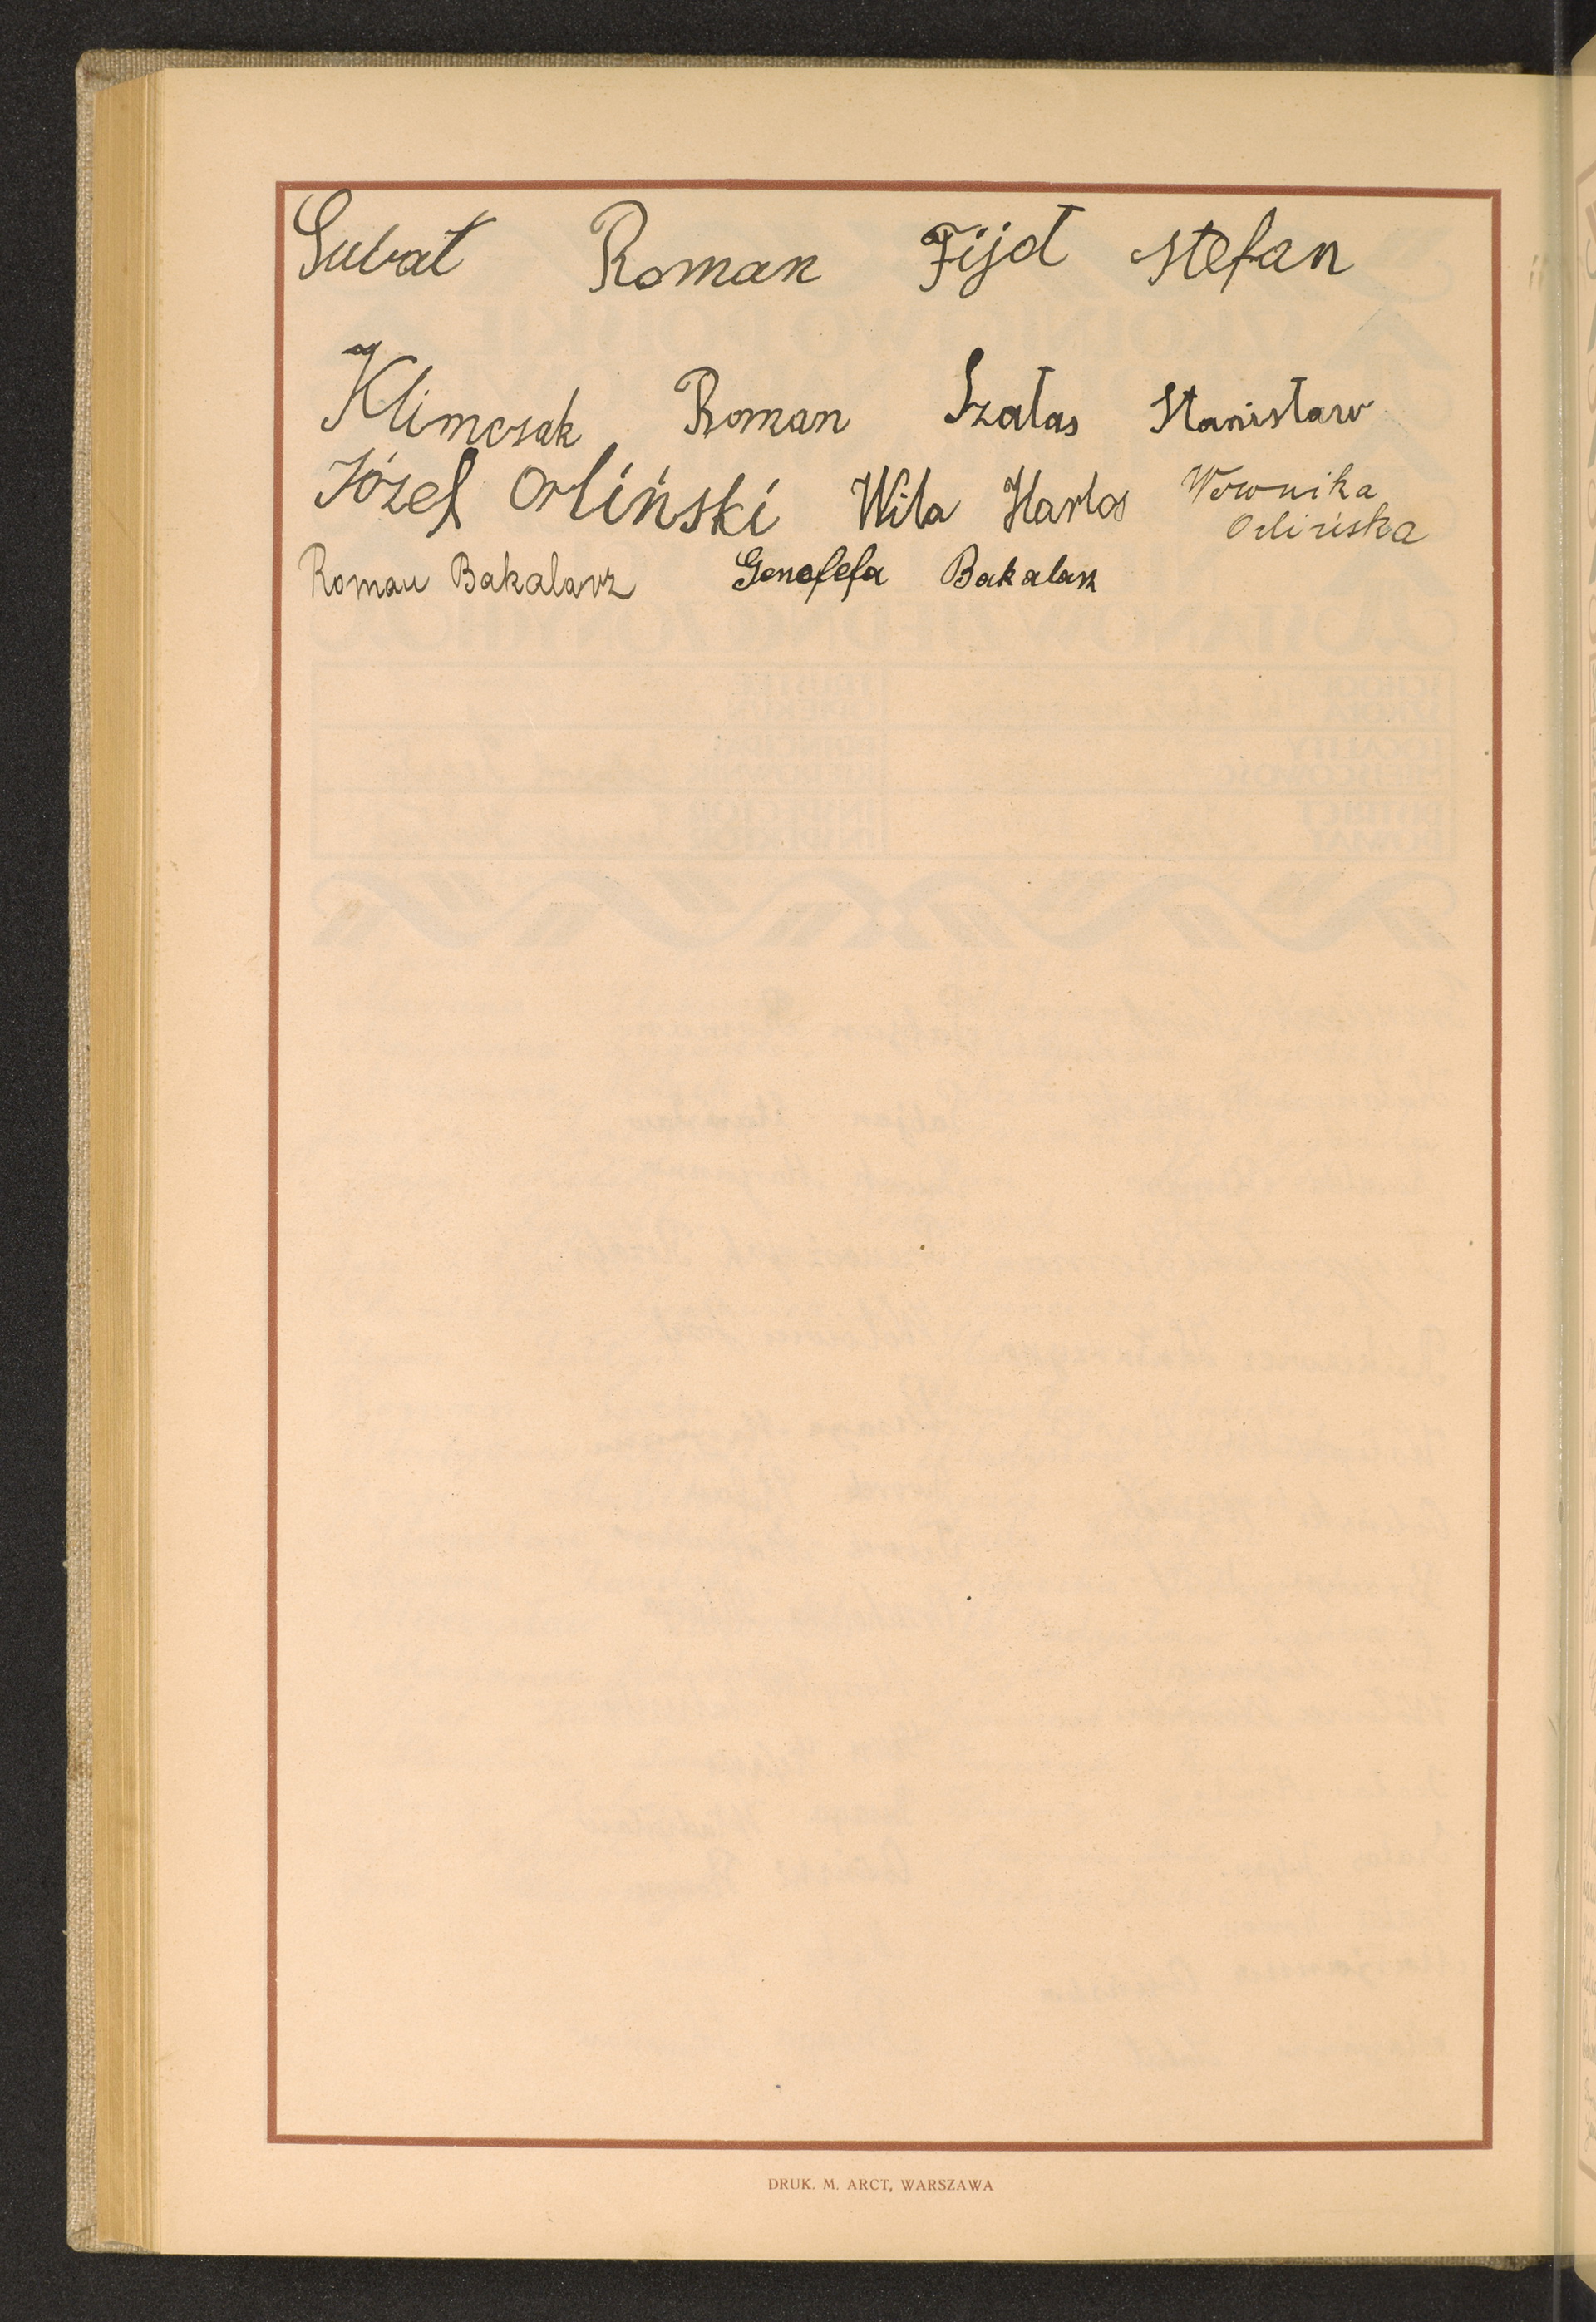 Subat Roman Fijoł Stefan
Klimczak Roman Szałas Stanisław
Józef Orliński Wila Harlos Weronika
Orlińska
Roman Bakalarz Genofefa Bakalarz
DRUK. M. ARCT, WARSZAWA